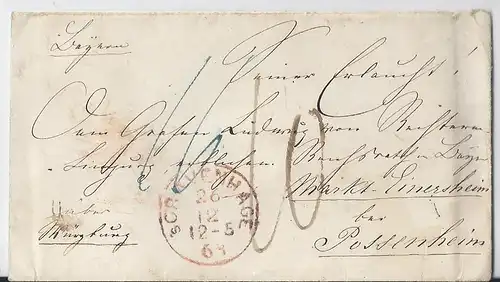 Bayern
Seiner Erlaucht!
Dem Grafen Ludwig von Rechtern
Limpurg, erblichen Reichsrath in Bayern
Markt-Einersheim
bei
Possenheim
Ueber
Würzburg
'S GRAVENHAGE
26
12
12-5